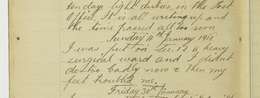 on day light duties in the Post
Office. It is all writing up and
the time passed all too soon
Sunday 11th January 1918
I was put on Sec. 13 a heavy
surgical ward and I didnt
desire badly now & then my
feet trouble me.
Friday 30th January